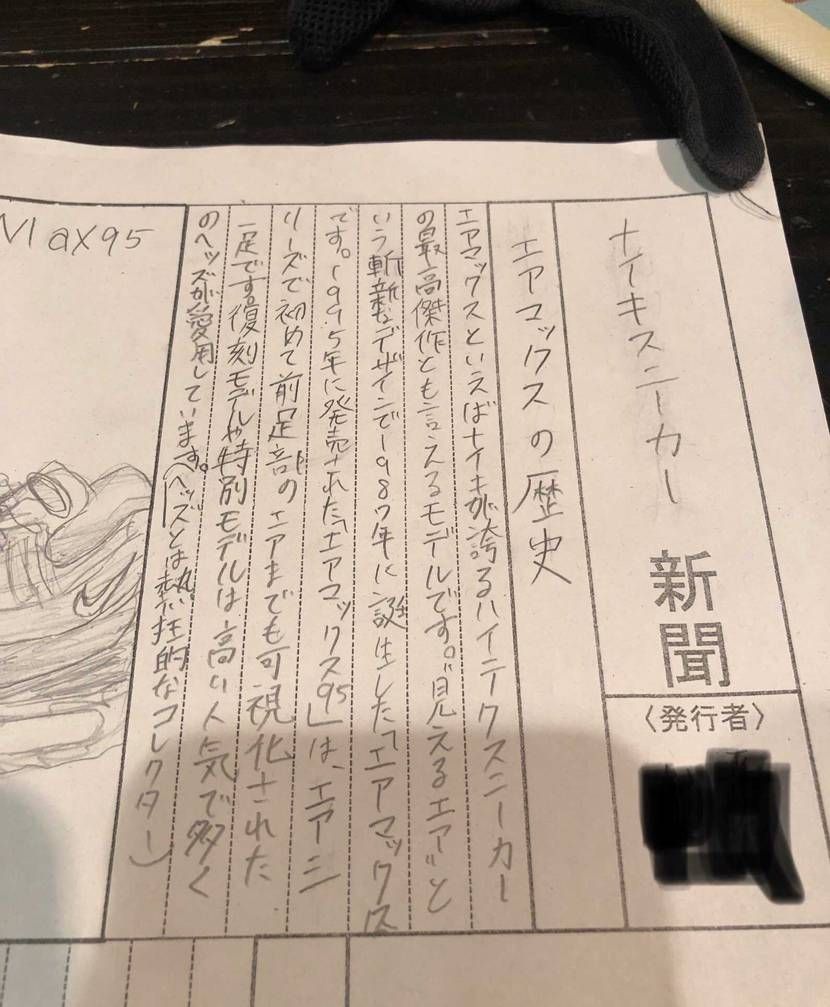 ナイキスニーカー
新聞
〈発行者〉
エアマックスの歴史
エアマックスといえばナイキが誇るハイテクスニーカー
の最高傑作とも言えるモデルです。"見えるエアー"と
いう斬新なデザインで1987年に誕生した「エアマックス
です。1995年に発売された「エアマックス95」は、エアーシ
リーズで初めて前足部のエアまでも可視化された
一足です。復刻モデルや特別モデルは高い人気で多く
のヘッズが愛用しています。(ヘッズとは熱狂的なコレクター)
Max95